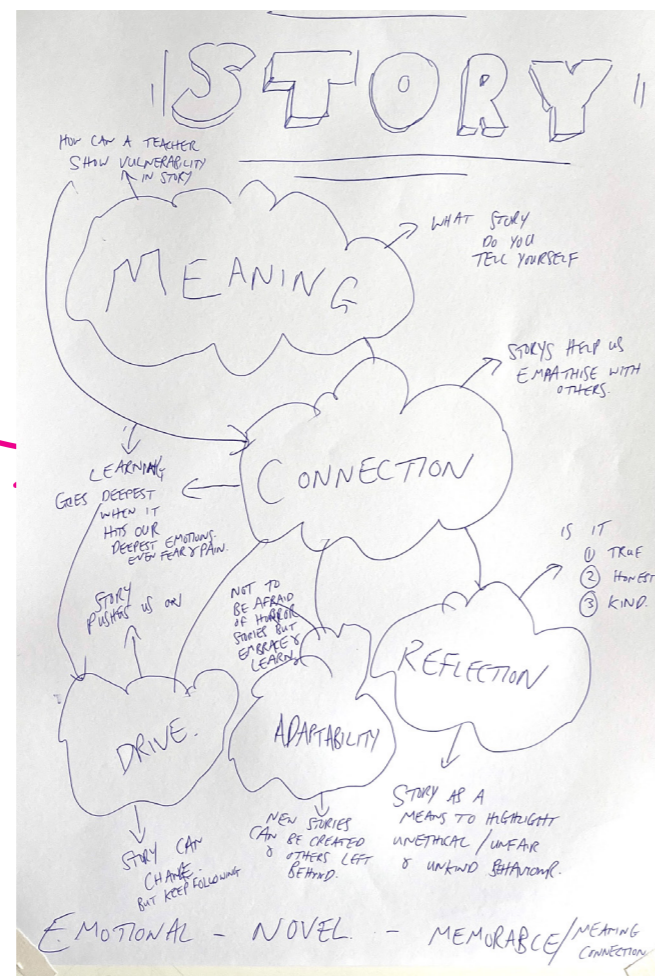 "STORY"
HOW CAN A TEACHER
SHOW VULNERABILITY
IN STORY
MEANING
WHAT STORY
DO YOU
TELL YOURSELF
STORYS HELP US
EMPATHISE WITH
OTHERS.
CONNECTION
LEARNING
GOES DEEPEST
WHEN IT
HITS OUR
DEEPEST EMOTIONS.
EVEN FEAR & PAIN.
IS IT
① TRUE
② HONEST
③ KIND.
STORY
PUSHES US ON
NOT TO
BE AFRAID
OF HORROR
STORIES BUT
EMBRACE &
LEARN
REFLECTION
DRIVE.
ADAPTABILITY
STORY AS A
MEANS TO HIGHLIGHT
UNETHICAL / UNFAIR
& UNKIND BEHAVIOUR.
NEW STORIES
CAN BE CREATED
& OTHERS LEFT
BEHIND.
STORY CAN
CHANGE.
BUT KEEP FOLLOWING
EMOTIONAL - NOVEL. - MEMORABLE / MEANING
CONNECTION